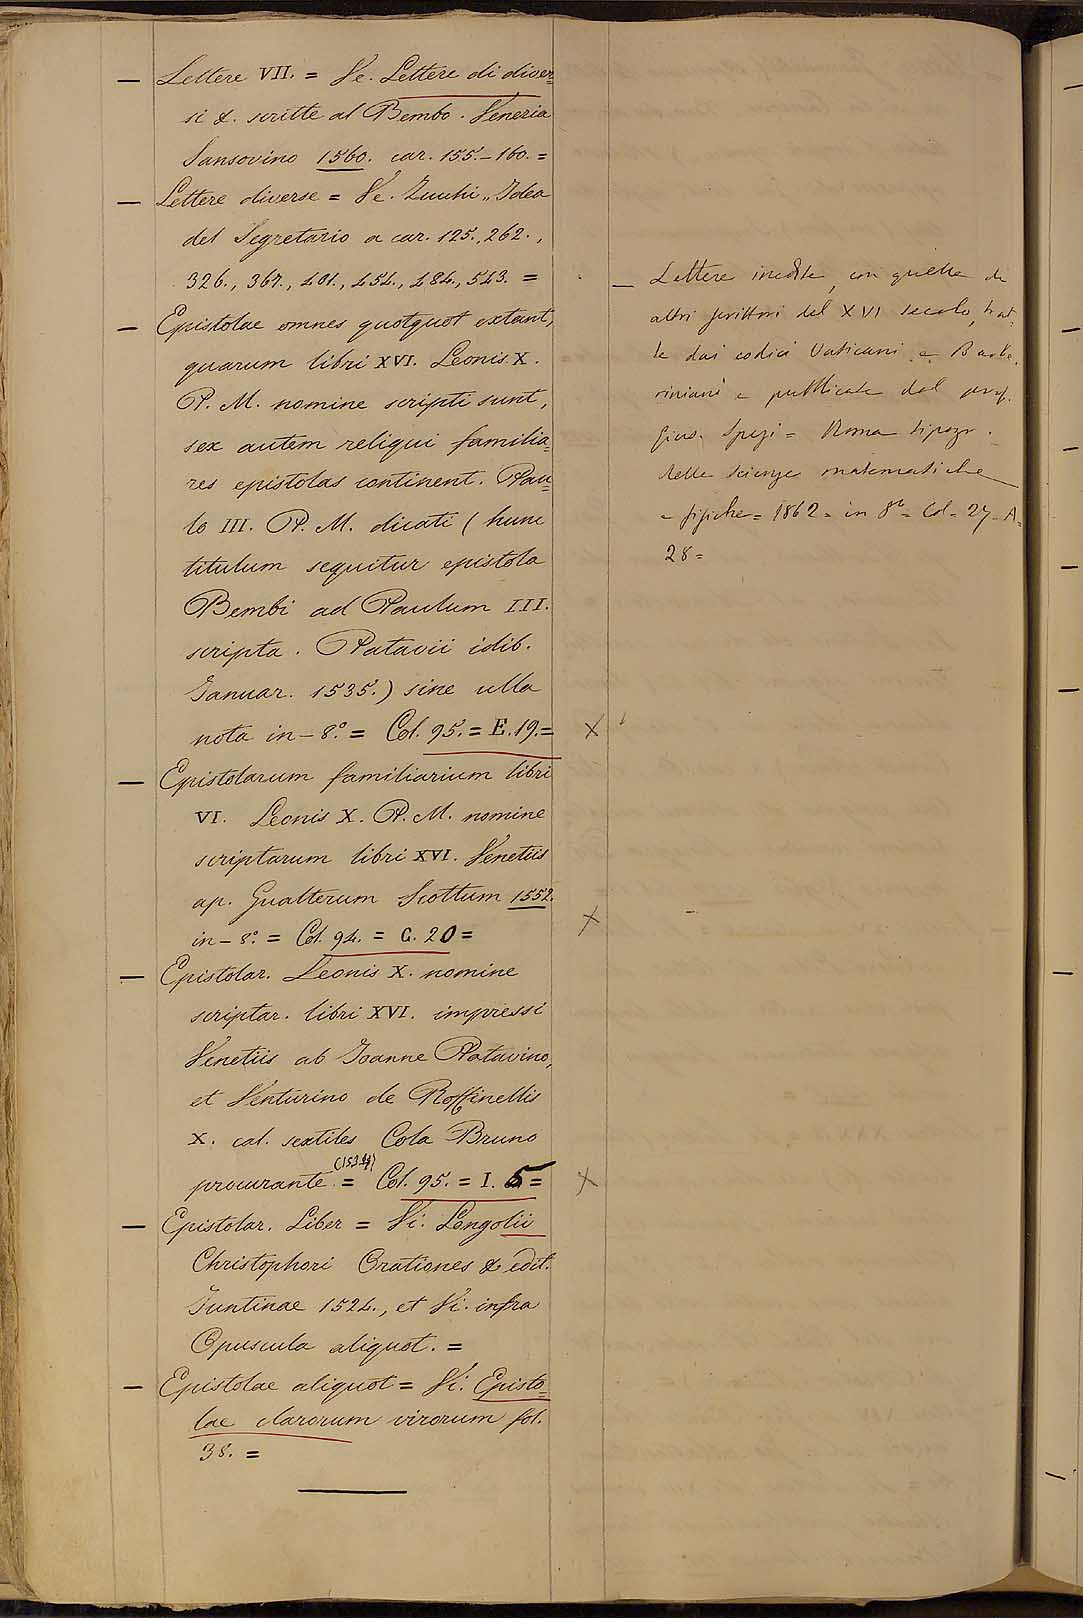 — Lettere VII. = Ve. Lettere di diver=
si &. scritte al Bembo. Venezia
Sansovino 1560. car. 155.-160. =
— Lettere diverse = Ve. Zucchi „ Idea
del Segretario a car. 125., 262.,
326., 367., 401., 454., 484., 543. =
— Epistolae omnes quotquot extant,
quarum libri XVI. Leonis X.
P. M. nomine scripti sunt,
sex autem reliqui familia=
res epistolas continent. Pau=
lo III. P. M. dicati (hunc
titulum sequitur epistola
Bembi ad Paulum III.
scripta. Patavii idib.
Januar. 1535.) sine ulla
nota in-8.° = Col. 95. = E. 19. = X
— Epistolarum familiarium libri
VI. Leonis X. P. M. nomine
scriptarum libri XVI. Venetiis
ap. Gualterum Scottum 1552.
in-8.° = Col. 94. = G. 20 = X
— Epistolar. Leonis X. nomine
scriptar. libri XVI. impressi
Venetiis ab Joanne Patavino,
et Venturino de Roffinellis
X. cal. sextiles Cola Bruno
procurante = Col. 95. = I. 5 = X
— Epistolar. Liber = Vi. Longolii
Christophori Orationes & edit.
Juntinae 1524., et Vi. infra
Opuscula aliquot. =
— Epistolae aliquot = Vi. Episto=
lae clarorum virorum fol.
38. =
— Lettere inedite, con quelle di
altri scrittori del XVI secolo, trat-
te dai codici Vaticani e Barbe.
riniani e pubblicate dal prof.
Gius. Spezi = Roma tipogr.
delle scienze matematiche
e fisiche = 1862 = in 8° = Col = 27 - A =
28 =